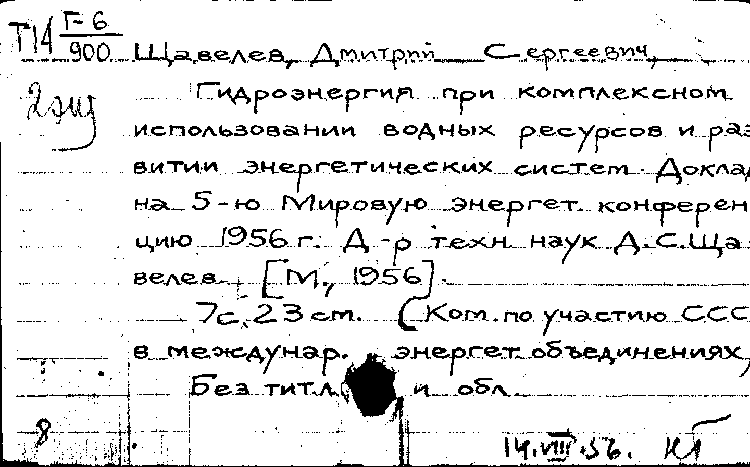 Т14 Г-6
900
Щавелев, Дмитрий Сергеевич,
2 экз
Гидроэнергия при комплексном
использовании водных ресурсов и раз
витии энергетических систем. Доклад
на 5-ю Мировую энергет. конферен
цию 1956 г. Д-р техн. наук Д.С. Ща-
велев. [М., 1956].
7с. 23 см. (Ком. по участию ССС
в междунар. энергет. объединениях)
Без титл. и обл.
8
14.VIII.56.